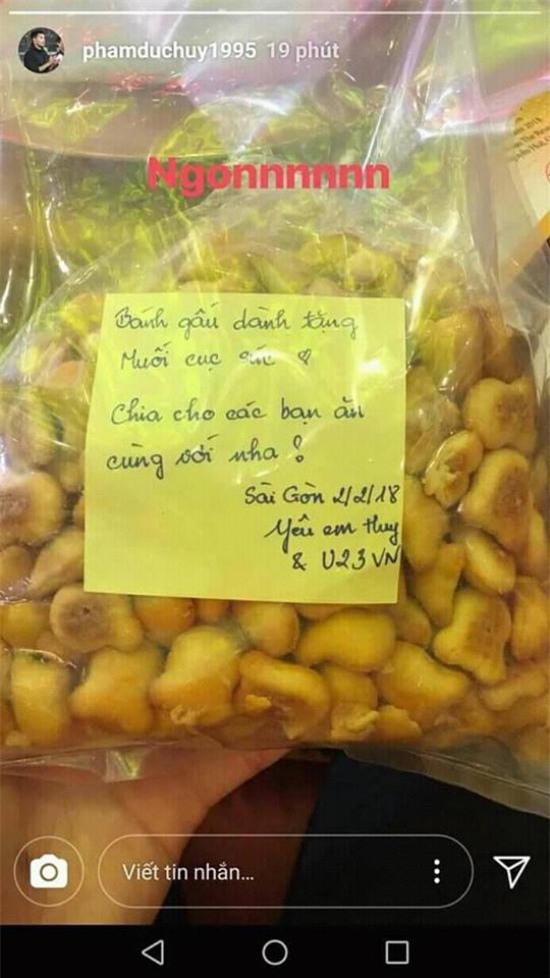 phamduchuy1995 19 phút
Ngonnnnnn
Bánh gấu dành tặng
Muối cục súc
Chia cho các bạn ăn
cùng với nha !
Sài Gòn 2/2/18
Yêu em Huy
& U23 VN
Viết tin nhắn...